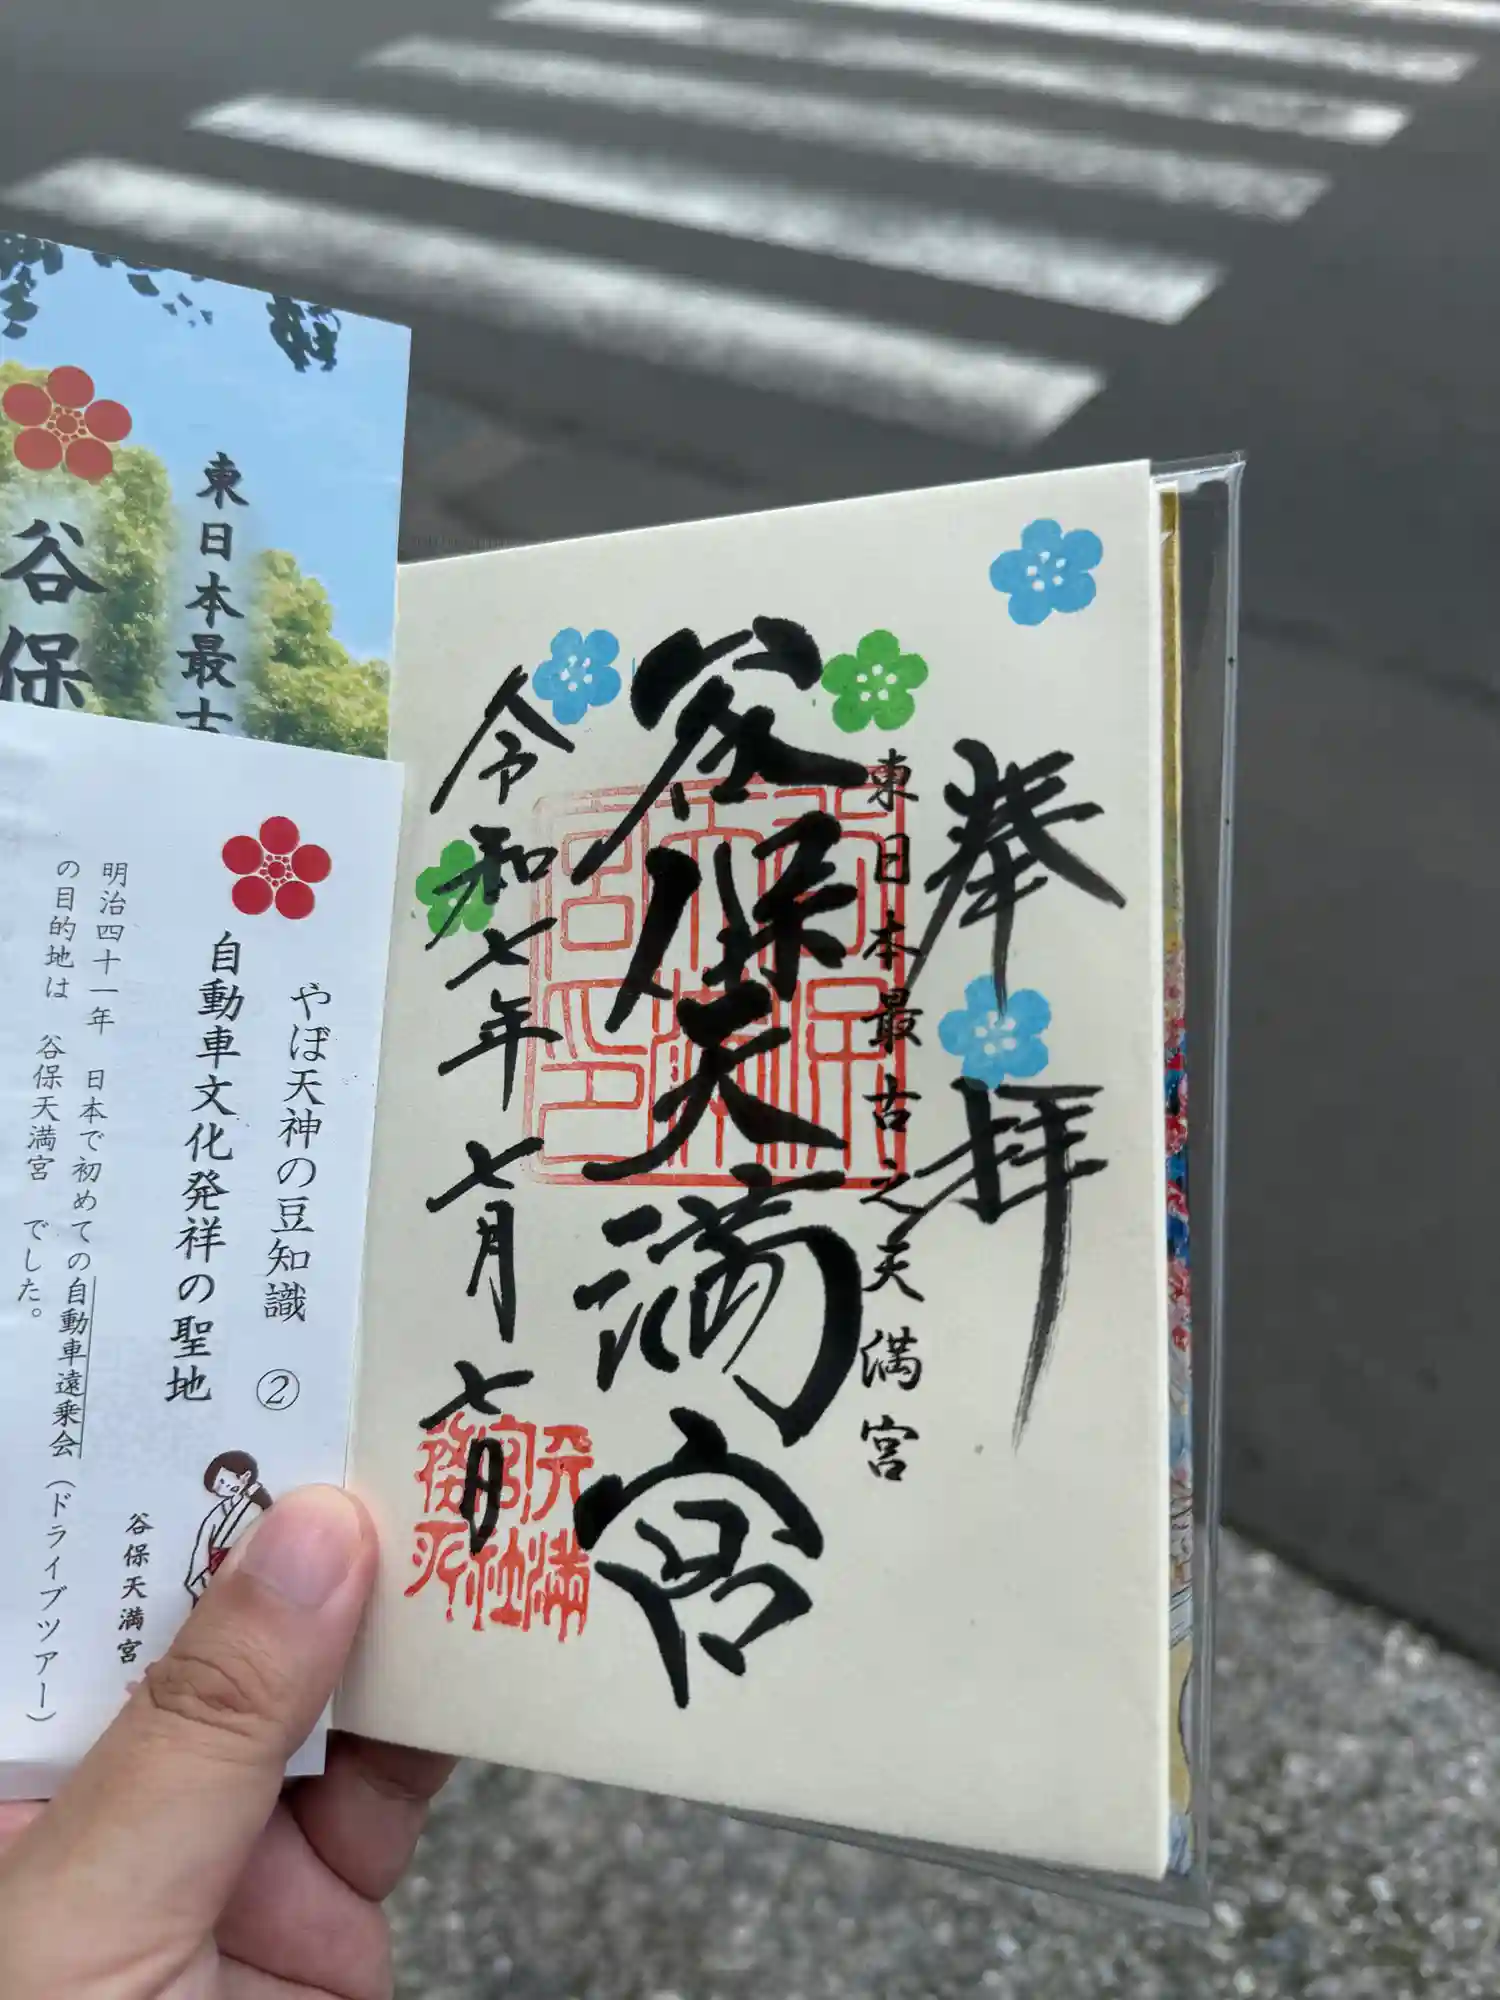 奉拝
東日本最古之天満宮
谷保天満宮
令和七年七月七日
東日本最古
谷保
やぼ天神の豆知識 ②
自動車文化発祥の聖地
明治四十一年 日本で初めての自動車遠乗会(ドライブツアー)
の目的地は 谷保天満宮 でした。
谷保天満宮